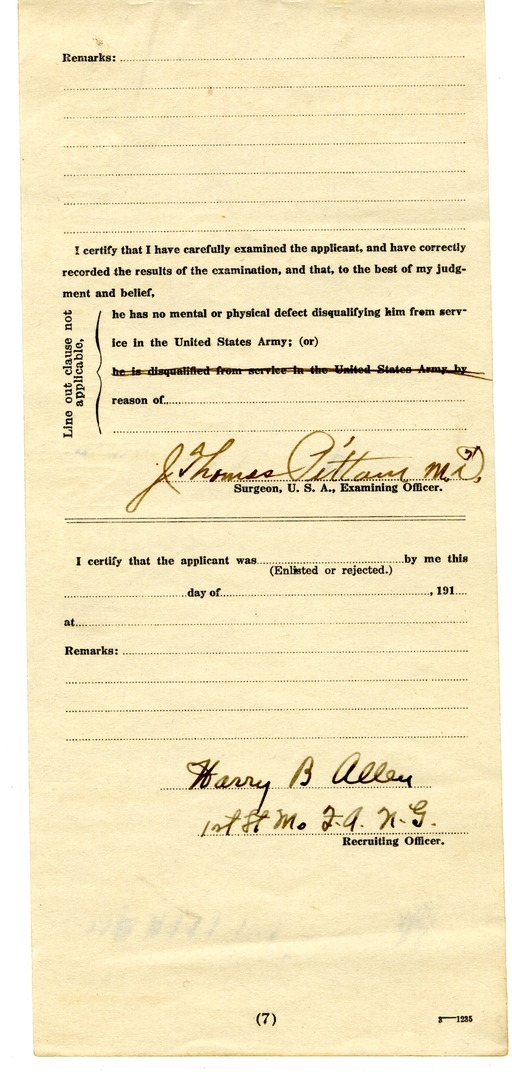 Remarks:
I certify that I have carefully examined the applicant, and have correctly
recorded the results of the examination, and that, to the best of my judg-
ment and belief,
Line out clause not
applicable,
he has no mental or physical defect disqualifying him from serv-
ice in the United States Army; (or)
he is disqualified from service in the United States Army by
reason of
J Thomas Pittam M.D.
Surgeon, U. S. A., Examining Officer.
I certify that the applicant was by me this
(Enlisted or rejected.)
day of , 191
at
Remarks:
Harry B Allen
1st Lt Mo F.A. N.G.
Recruiting Officer.
(7)
3—1235